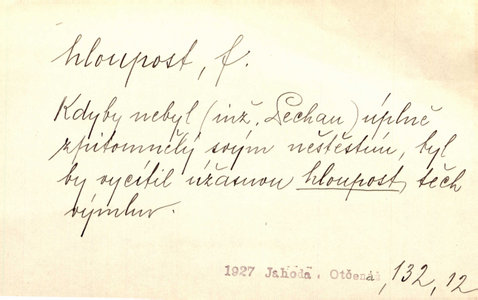 hloupost, f.
Kdyby nebyl (inž. Pechan) úplně
zpitomnělý svým neštěstím, byl
by vycítil úžasnou hloupost těch
výmluv.
1927 Jahoda, Otčenáš, 132, 12